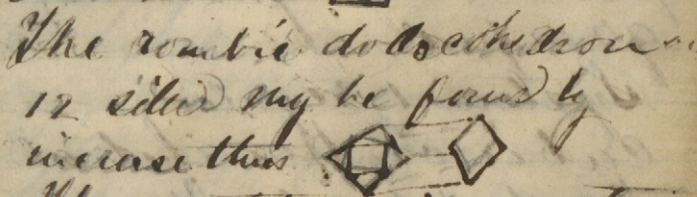 The rombic dodocohedron
12 sides my be found by
increase thus